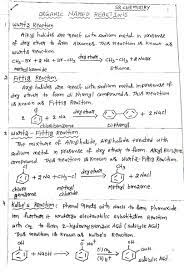 SR.CHEMISTRY
ORGANIC NAMED REACTIONS
1 Wurtz Reaction
Alkyl halides are react with sodium metal in presence
of dry ether to form alkanes. This reaction is known as
Wurtz reaction.
CH₃-Br + Na + Br-CH₃ dry ether CH₃-CH₃
Ethane
2 Fittig Reaction
Aryl halides are react with sodium metal in presence
of dry ether to form di phenyl compounds. This reaction
is known as Fittig Reaction.
dry ether
chlorobenzene
Diphenyl
3 Wurtz - Fittig Reaction
The mixture of alkyl halide, aryl halide treated with
sodium metal in presence of dry ether to form alkyl
compound. This reaction is known as Wurtz-Fittig Reaction.
dry ether
chloro benzene
methyl chloride
methyl benzene
4 Kolbe's Reaction: Phenol treats with NaOH to form Phenoxide
ion further it undergo electrophilic substitution Reaction
with CO₂ to form 2-hydroxy benzoic acid (salicylic acid)
This reaction is known as Kolbe's Reaction.
OH
+ NaOH
OH
COOH